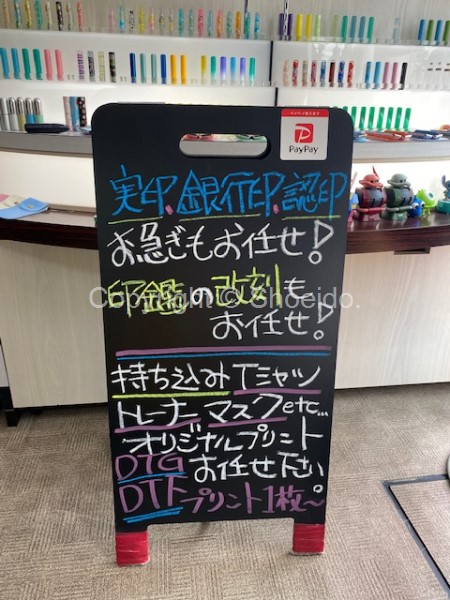 PayPay
実印.銀行印.認印
お急ぎもお任せ!
印鑑の改刻も
お任せ!
Copyright © Shoeido.
持ち込みTシャツ
トレーナーマスクetc...
オリジナルプリント
DTGお任せ下さい。
DTFプリント1枚~